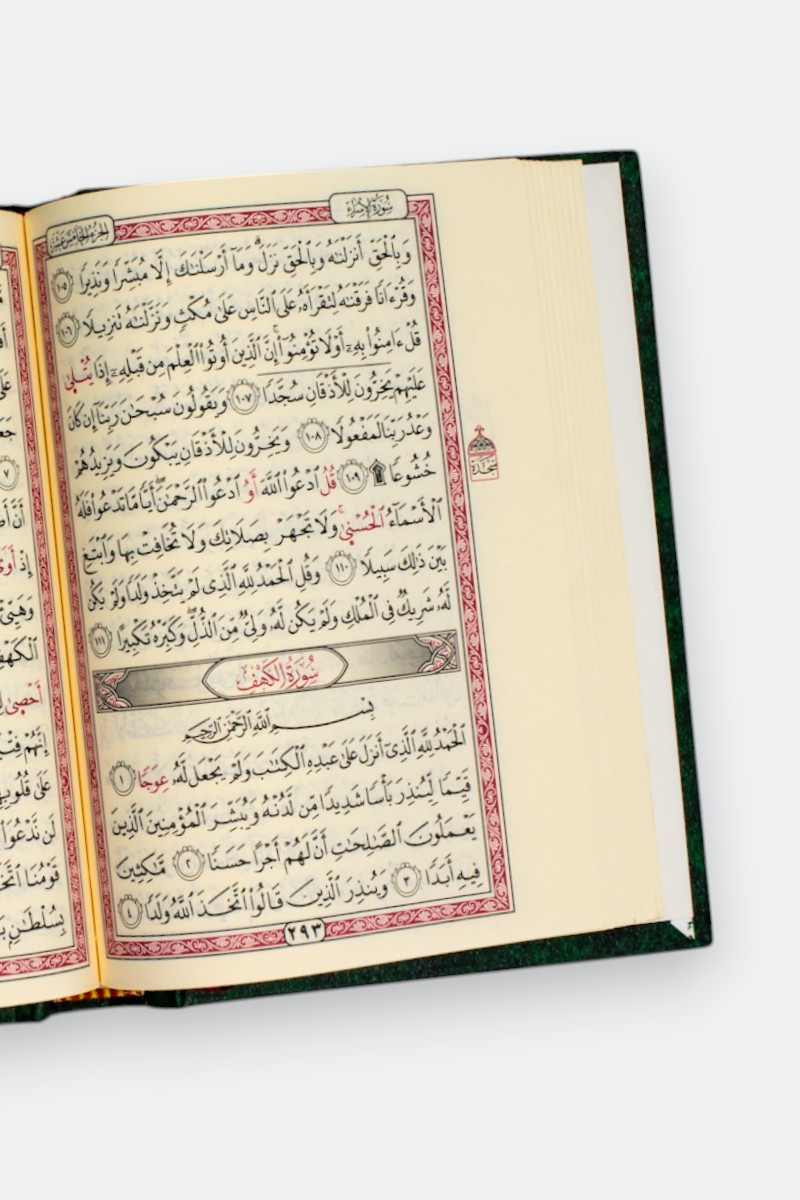 سُورَةُ الإِسْرَاءِ
الجُزْءُ الخَامِسَ عَشَرَ
وَبِٱلْحَقِّ أَنزَلْنَٰهُ وَبِٱلْحَقِّ نَزَلَ ۗ وَمَآ أَرْسَلْنَٰكَ إِلَّا مُبَشِّرًا وَنَذِيرًا ١٠٥
وَقُرْءَانًا فَرَقْنَٰهُ لِتَقْرَأَهُۥ عَلَى ٱلنَّاسِ عَلَىٰ مُكْثٍ وَنَزَّلْنَٰهُ تَنزِيلًا ١٠٦
قُلْ ءَامِنُوا۟ بِهِۦٓ أَوْ لَا تُؤْمِنُوٓا۟ ۚ إِنَّ ٱلَّذِينَ أُوتُوا۟ ٱلْعِلْمَ مِن قَبْلِهِۦٓ إِذَا يُتْلَىٰ
عَلَيْهِمْ يَخِرُّونَ لِلْأَذْقَانِ سُجَّدًا ١٠٧ وَيَقُولُونَ سُبْحَٰنَ رَبِّنَآ إِن كَانَ
وَعْدُ رَبِّنَا لَمَفْعُولًا ١٠٨ وَيَخِرُّونَ لِلْأَذْقَانِ يَبْكُونَ وَيَزِيدُهُمْ
خُشُوعًا ۩ ١٠٩ قُلُ ٱدْعُوا۟ ٱللَّهَ أَوُ ٱدْعُوا۟ ٱلرَّحْمَٰنَ ۖ أَيًّا مَّا تَدْعُوا۟ فَلَهُ
ٱلْأَسْمَآءُ ٱلْحُسْنَىٰ ۚ وَلَا تَجْهَرْ بِصَلَاتِكَ وَلَا تُخَافِتْ بِهَا وَٱبْتَغِ
بَيْنَ ذَٰلِكَ سَبِيلًا ١١٠ وَقُلِ ٱلْحَمْدُ لِلَّهِ ٱلَّذِى لَمْ يَتَّخِذْ وَلَدًا وَلَمْ يَكُن
لَّهُۥ شَرِيكٌ فِى ٱلْمُلْكِ وَلَمْ يَكُن لَّهُۥ وَلِىٌّ مِّنَ ٱلذُّلِّ ۖ وَكَبِّرْهُ تَكْبِيرًا ١١١
سُورَةُ الكَهْفِ
بِسْمِ ٱللَّهِ ٱلرَّحْمَٰنِ ٱلرَّحِيمِ
ٱلْحَمْدُ لِلَّهِ ٱلَّذِىٓ أَنزَلَ عَلَىٰ عَبْدِهِ ٱلْكِتَٰبَ وَلَمْ يَجْعَل لَّهُۥ عِوَجًا ١
قَيِّمًا لِّيُنذِرَ بَأْسًا شَدِيدًا مِّن لَّدُنْهُ وَيُبَشِّرَ ٱلْمُؤْمِنِينَ ٱلَّذِينَ
يَعْمَلُونَ ٱلصَّٰلِحَٰتِ أَنَّ لَهُمْ أَجْرًا حَسَنًا ٢ مَّٰكِثِينَ
فِيهِ أَبَدًا ٣ وَيُنذِرَ ٱلَّذِينَ قَالُوا۟ ٱتَّخَذَ ٱللَّهُ وَلَدًا ٤
٢٩٣
سَجْدَة
٧
إِذْ أَوَى
أَحْصَىٰ
إِنَّهُمْ
عَلَىٰ
لَن نَّدْعُوَا۟
قَوْمُنَا
بِسُلْطَٰنٍ